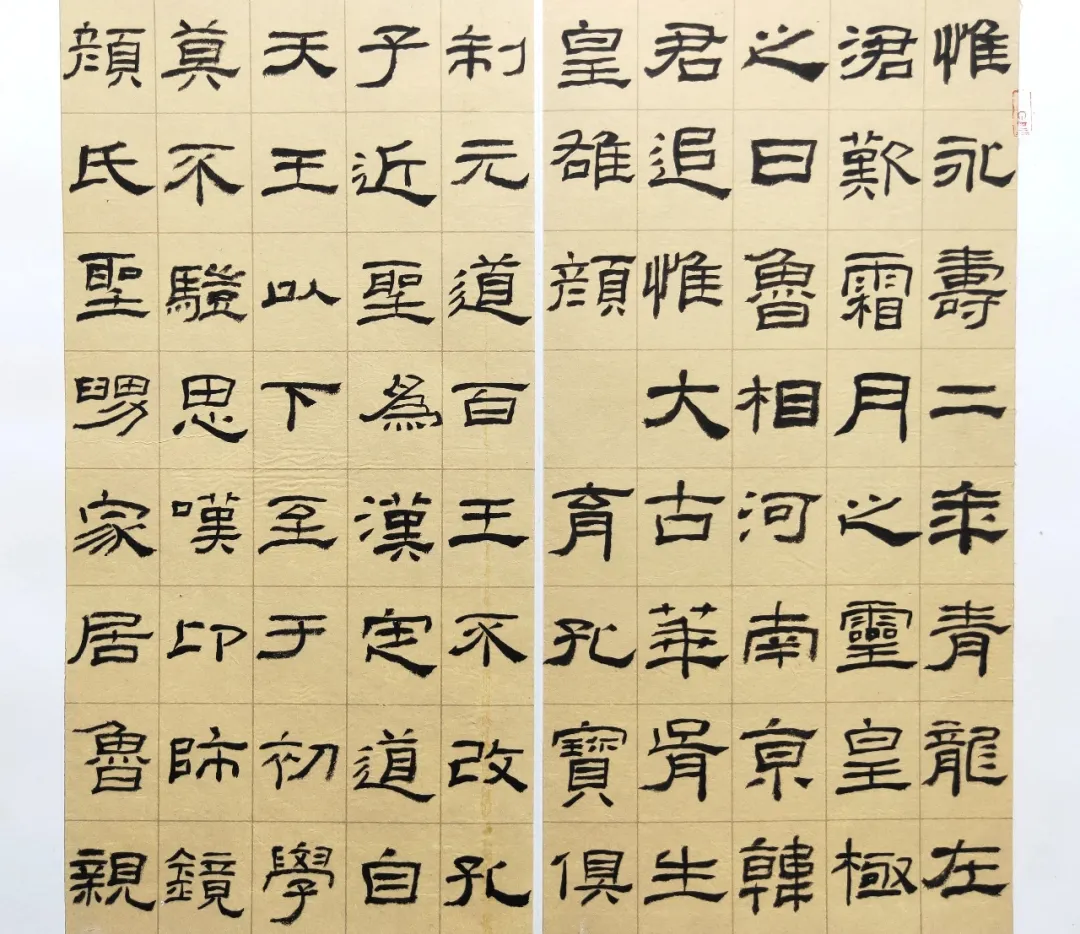 惟永壽二年青龍在
涒歎霜月之靈皇極
之日魯相河南京韓
君追惟大古華胥生
皇雄顏育孔寶俱
制元道百王不改孔
子近聖為漢定道自
天王以下至于初學
莫不𩥉思嘆卬師鏡
顏氏聖舅家居魯親